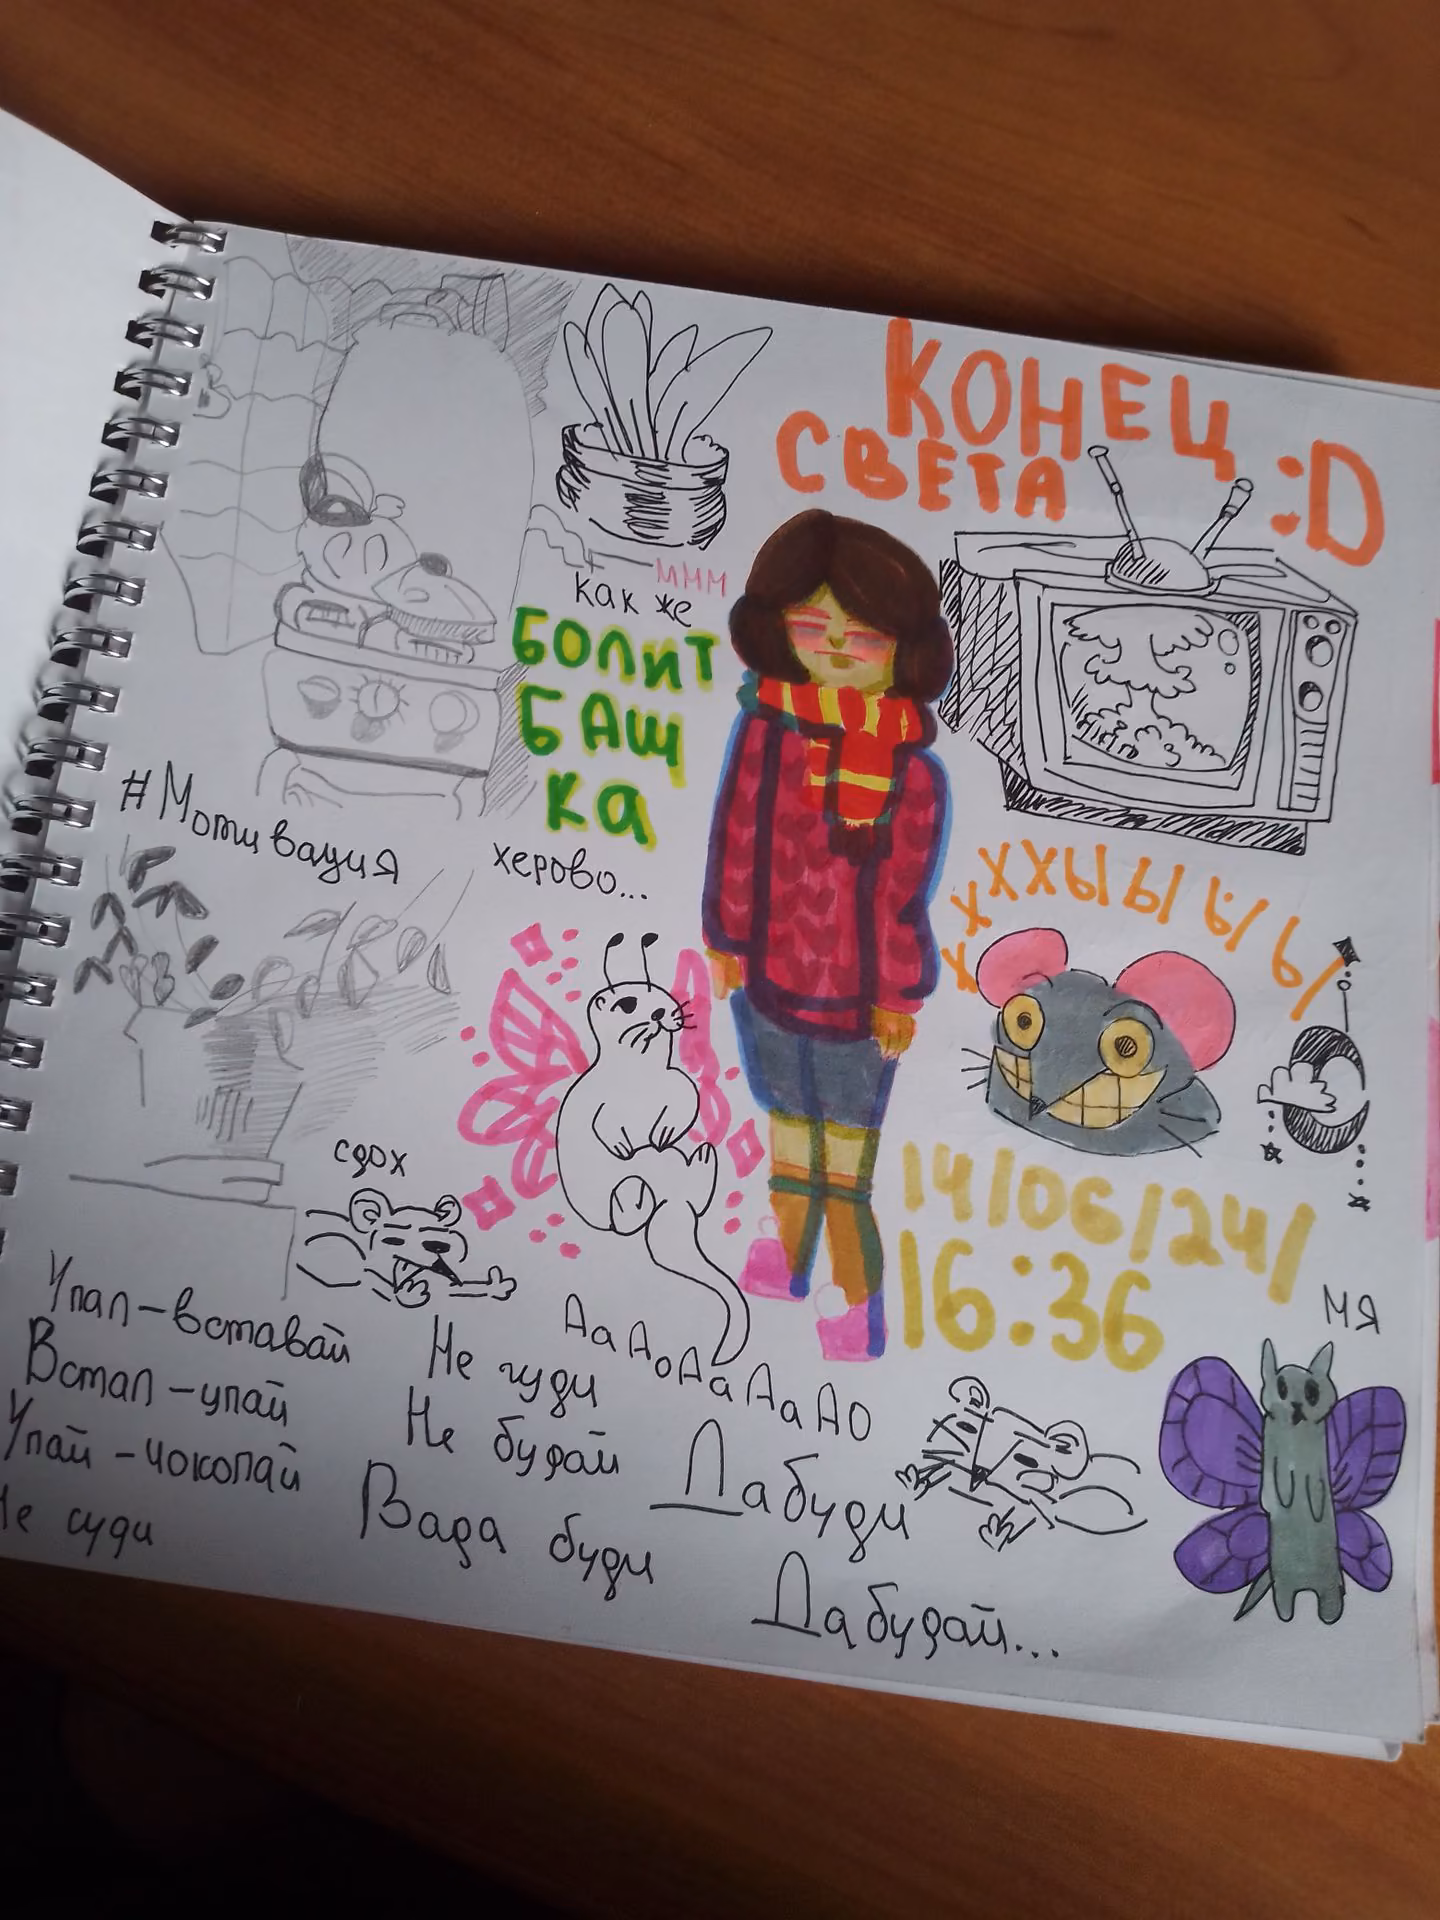 КОНЕЦ
СВЕТА :D
МММ
как же
БОЛИТ
БАШ
КА
херово...
#Мотивация
ХХХХЫЫЫЫЫ
сдох
14/06/24/
16:36
МЯ
АаАоАаАаАО
Упал-вставай
Встал-упай
Упай-чокопай
Не суди
Не гуди
Не будай
Вада буди
Дабуди
Дабудай...